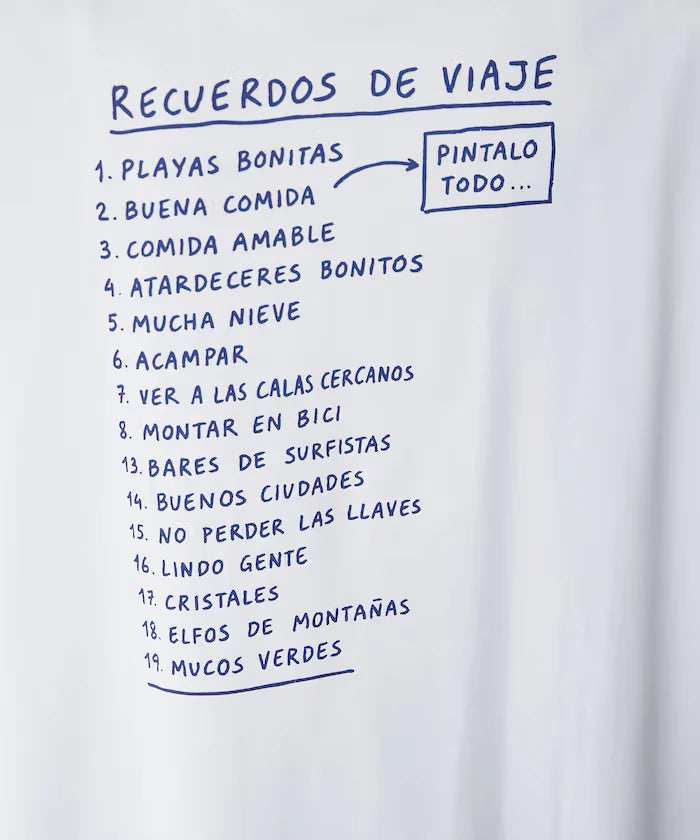 RECUERDOS DE VIAJE
1. PLAYAS BONITAS
PINTALO
TODO...
2. BUENA COMIDA
3. COMIDA AMABLE
4. ATARDECERES BONITOS
5. MUCHA NIEVE
6. ACAMPAR
7. VER A LAS CALAS CERCANOS
8. MONTAR EN BICI
13. BARES DE SURFISTAS
14. BUENOS CIUDADES
15. NO PERDER LAS LLAVES
16. LINDO GENTE
17. CRISTALES
18. ELFOS DE MONTAÑAS
19. MUCOS VERDES